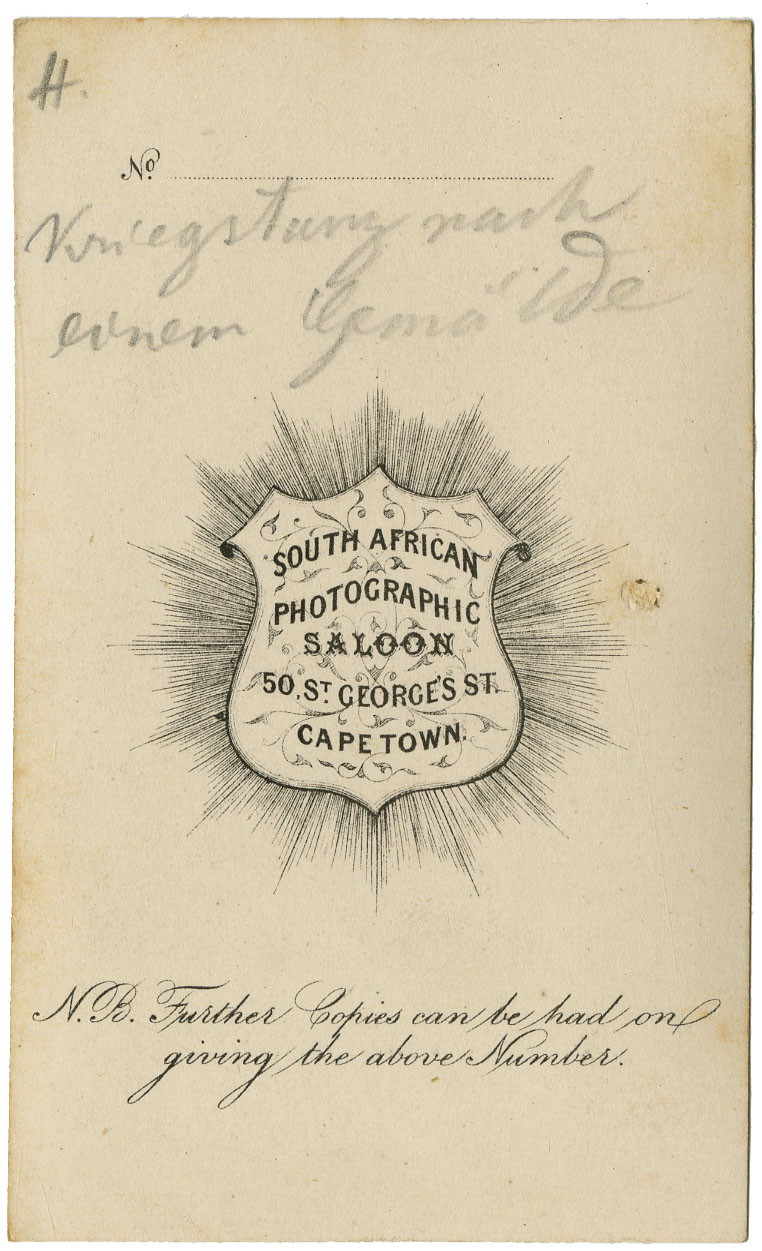 H.
No.
Kriegstanz nach
einem Gemälde
SOUTH AFRICAN
PHOTOGRAPHIC
SALOON
50, ST. GEORGE'S ST.
CAPE TOWN.
N.B. Further Copies can be had on
giving the above Number.